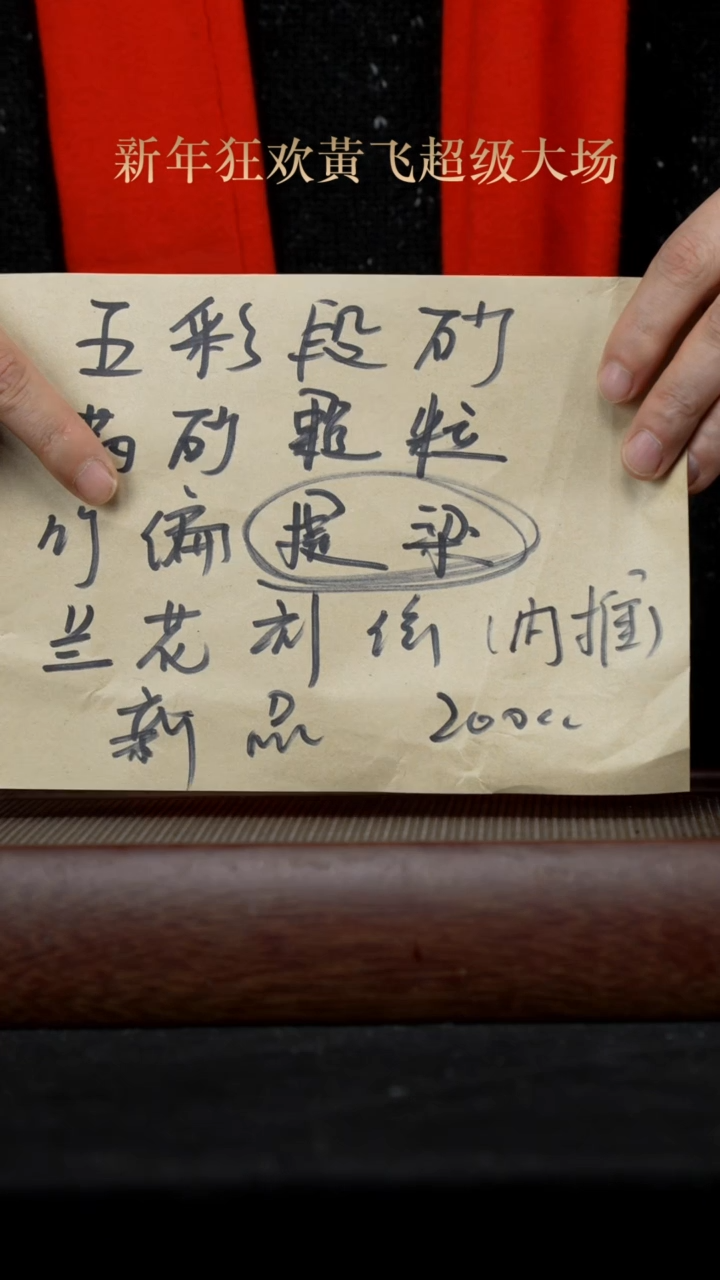 新年狂欢黄飞超级大场
五彩段砂
满砂颗粒
竹偏提梁
兰花刻绘(内推)
新品 200cc